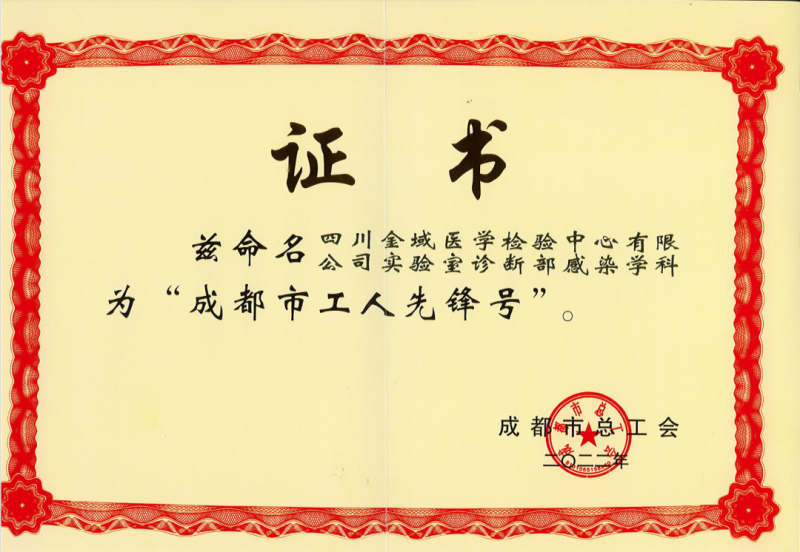 证书
兹命名四川金域医学检验中心有限
公司实验室诊断部感染学科
为“成都市工人先锋号”。
成都市总工会
二〇二二年
成都市总工会